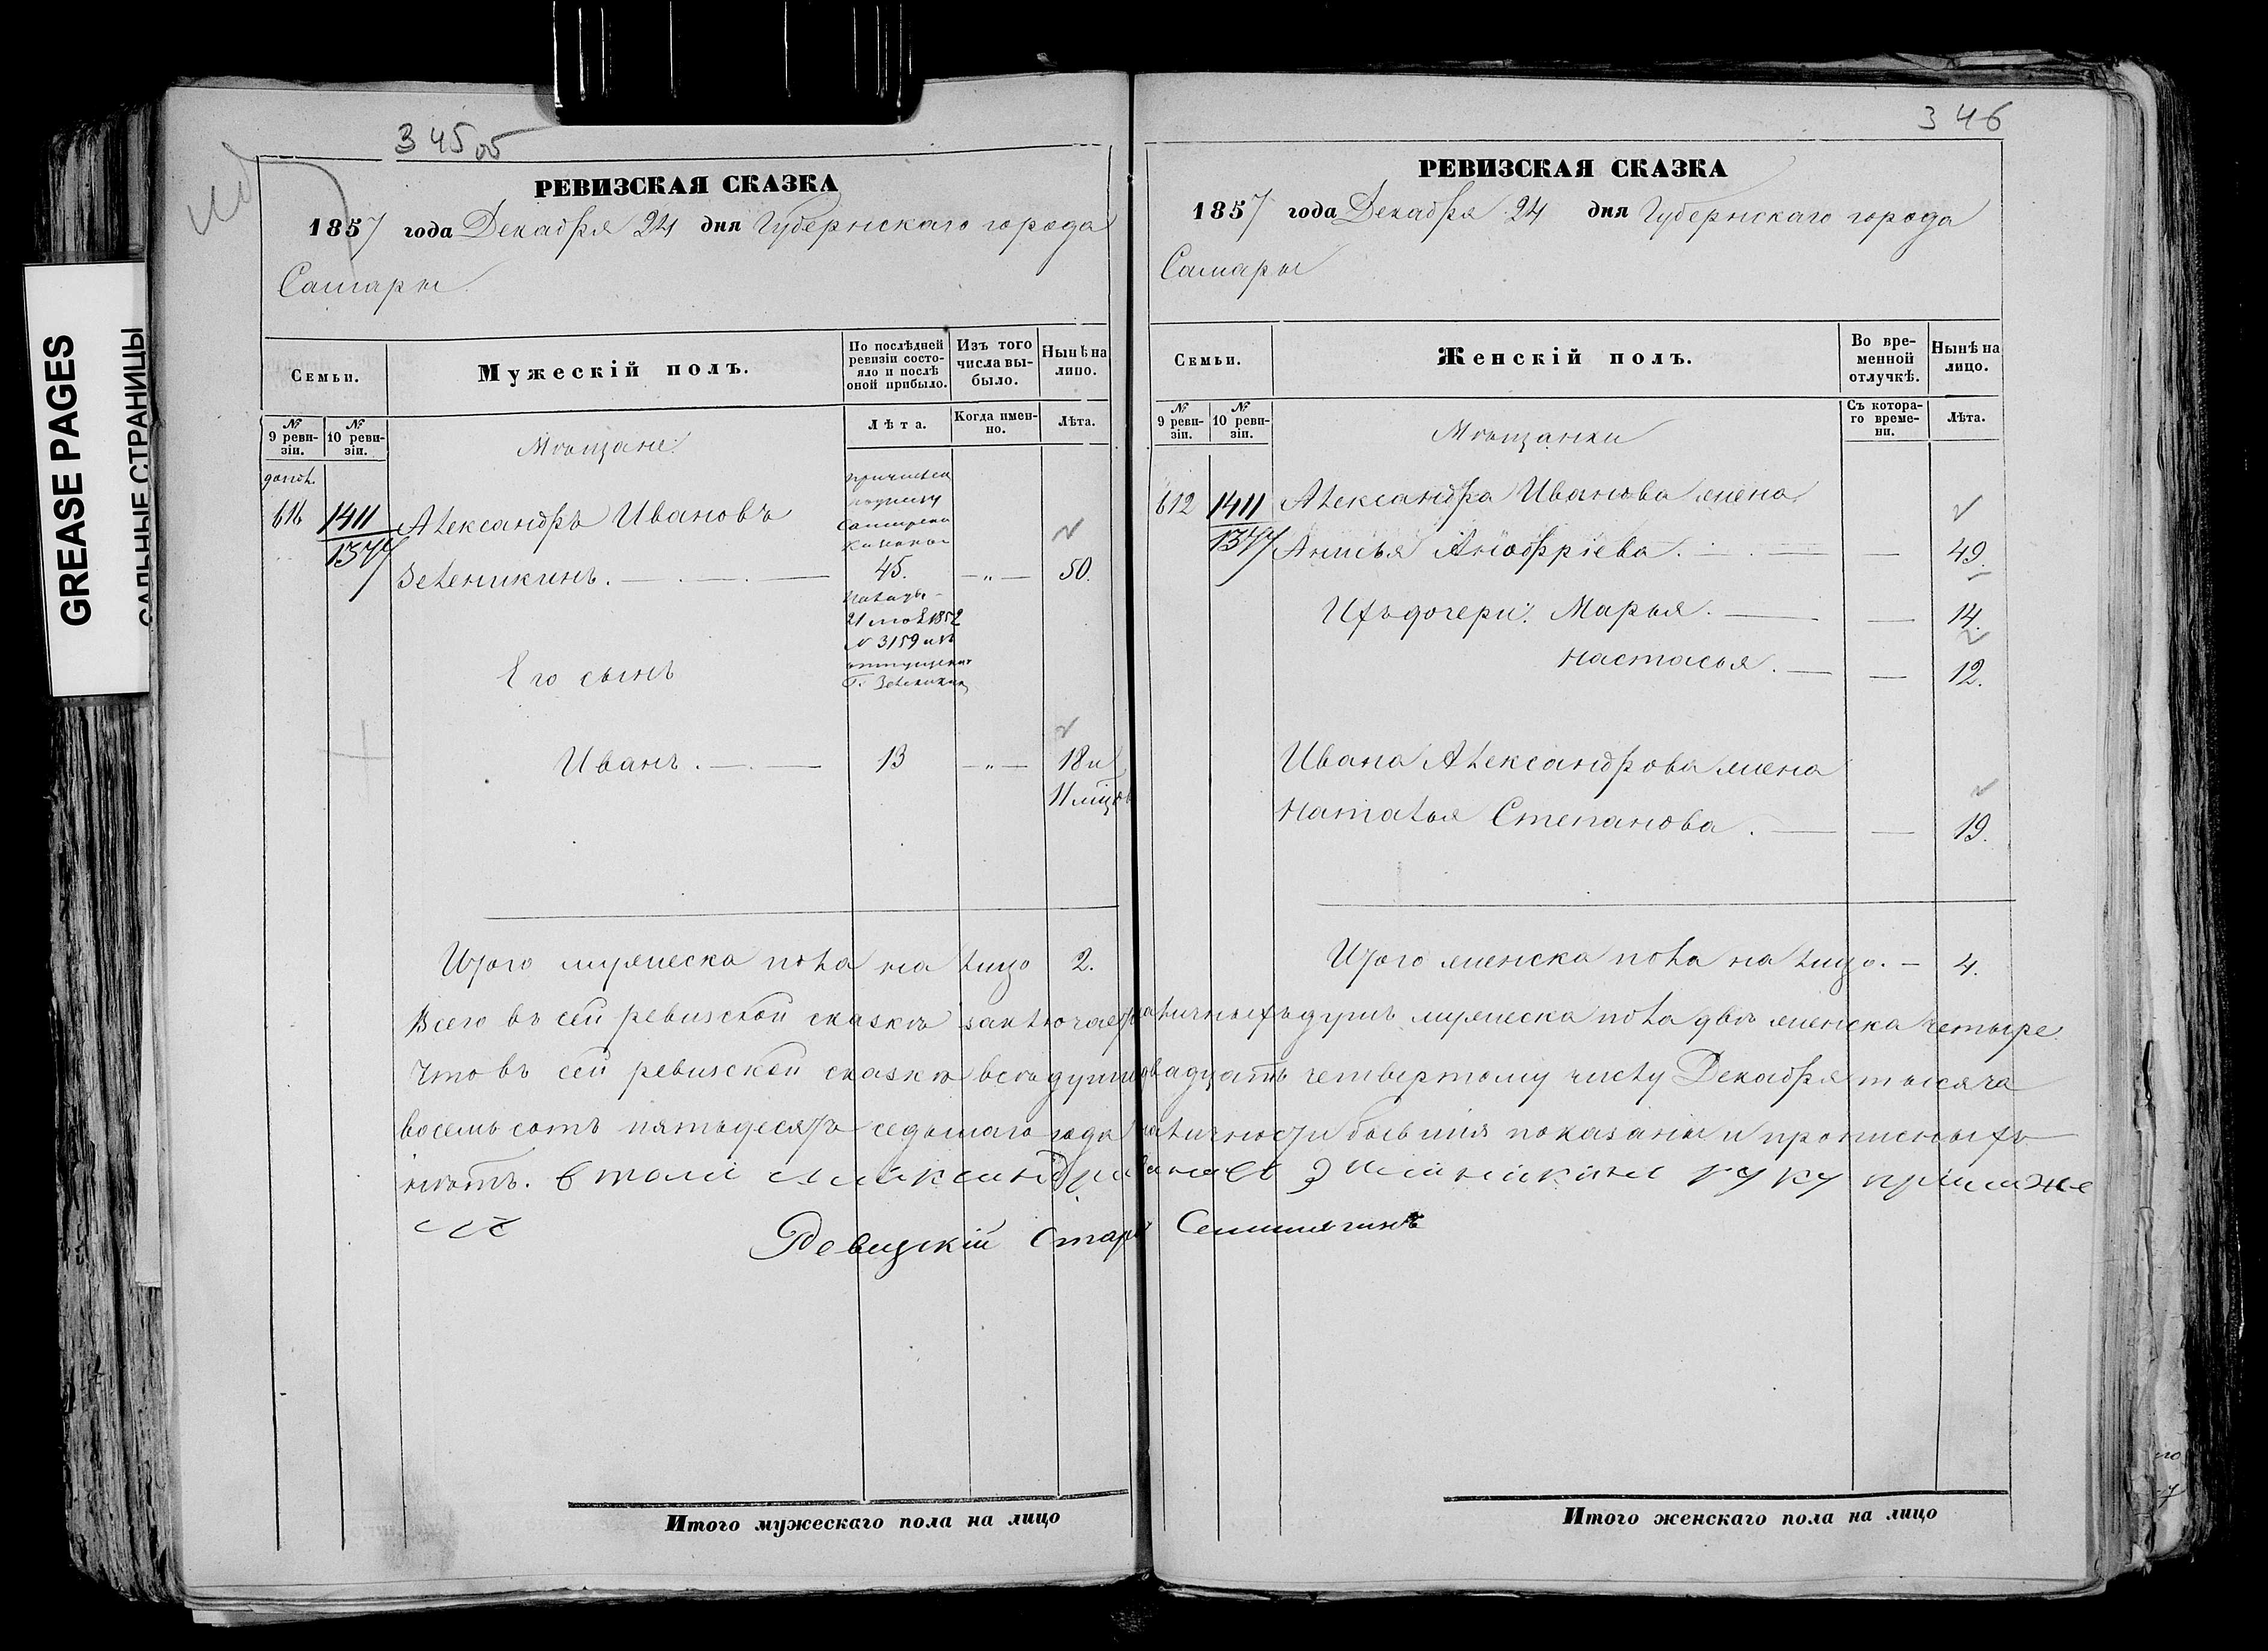 GREASE PAGES
САЛЬНЫЕ СТРАНИЦЫ
345 об
РЕВИЗСКАЯ СКАЗКА
1857 года Декабря 24 дня Губернскаго города
Самары
Семьи.
Мужескій полъ.
По послѣдней ревизіи состояло и послѣ оной прибыло.
Изъ того числа выбыло.
Нынѣ на лицо.
№ 9 ревизіи.
№ 10 ревизіи.
Мѣщане:
Лѣта.
Когда именно.
Лѣта.
1411
1377
Александръ Ивановъ
Зеленикинъ.
причислен
45.
— „ —
50.
Палаты
21 1852
№ 3159 изъ
Его сынъ
Иванъ.
13
— „ —
18 и
11 мцовъ
Итого мужеска пола на лицо 2.
346
РЕВИЗСКАЯ СКАЗКА
1857 года Декабря 24 дня Губернскаго города
Самары
Семьи.
Женскій полъ.
Во временной отлучкѣ.
Нынѣ на лицо.
№ 9 ревизіи.
№ 10 ревизіи.
Мѣщанки
Съ котораго времени.
Лѣта.
612
1411
1377
Александра Иванова жена
49.
Ихъ дочери: Марья. — 14.
Настасья. — 12.
Ивана Александрова жена
Наталья Степанова. — 19.
Итого женска пола на лицо. — 4.
Всего въ сей ревизской сказкѣ заключается наличныхъ душъ мужеска пола двѣ женска четыре.
Что въ сей ревизской сказкѣ всѣ души двадцать четвертому числу Декабря тысяча
восемьсотъ пятьдесятъ седьмаго года наличности бывшія показаны и прописныхъ
нѣтъ. руку приложе
Ревизскій Стар
Итого мужескаго пола на лицо
Итого женскаго пола на лицо